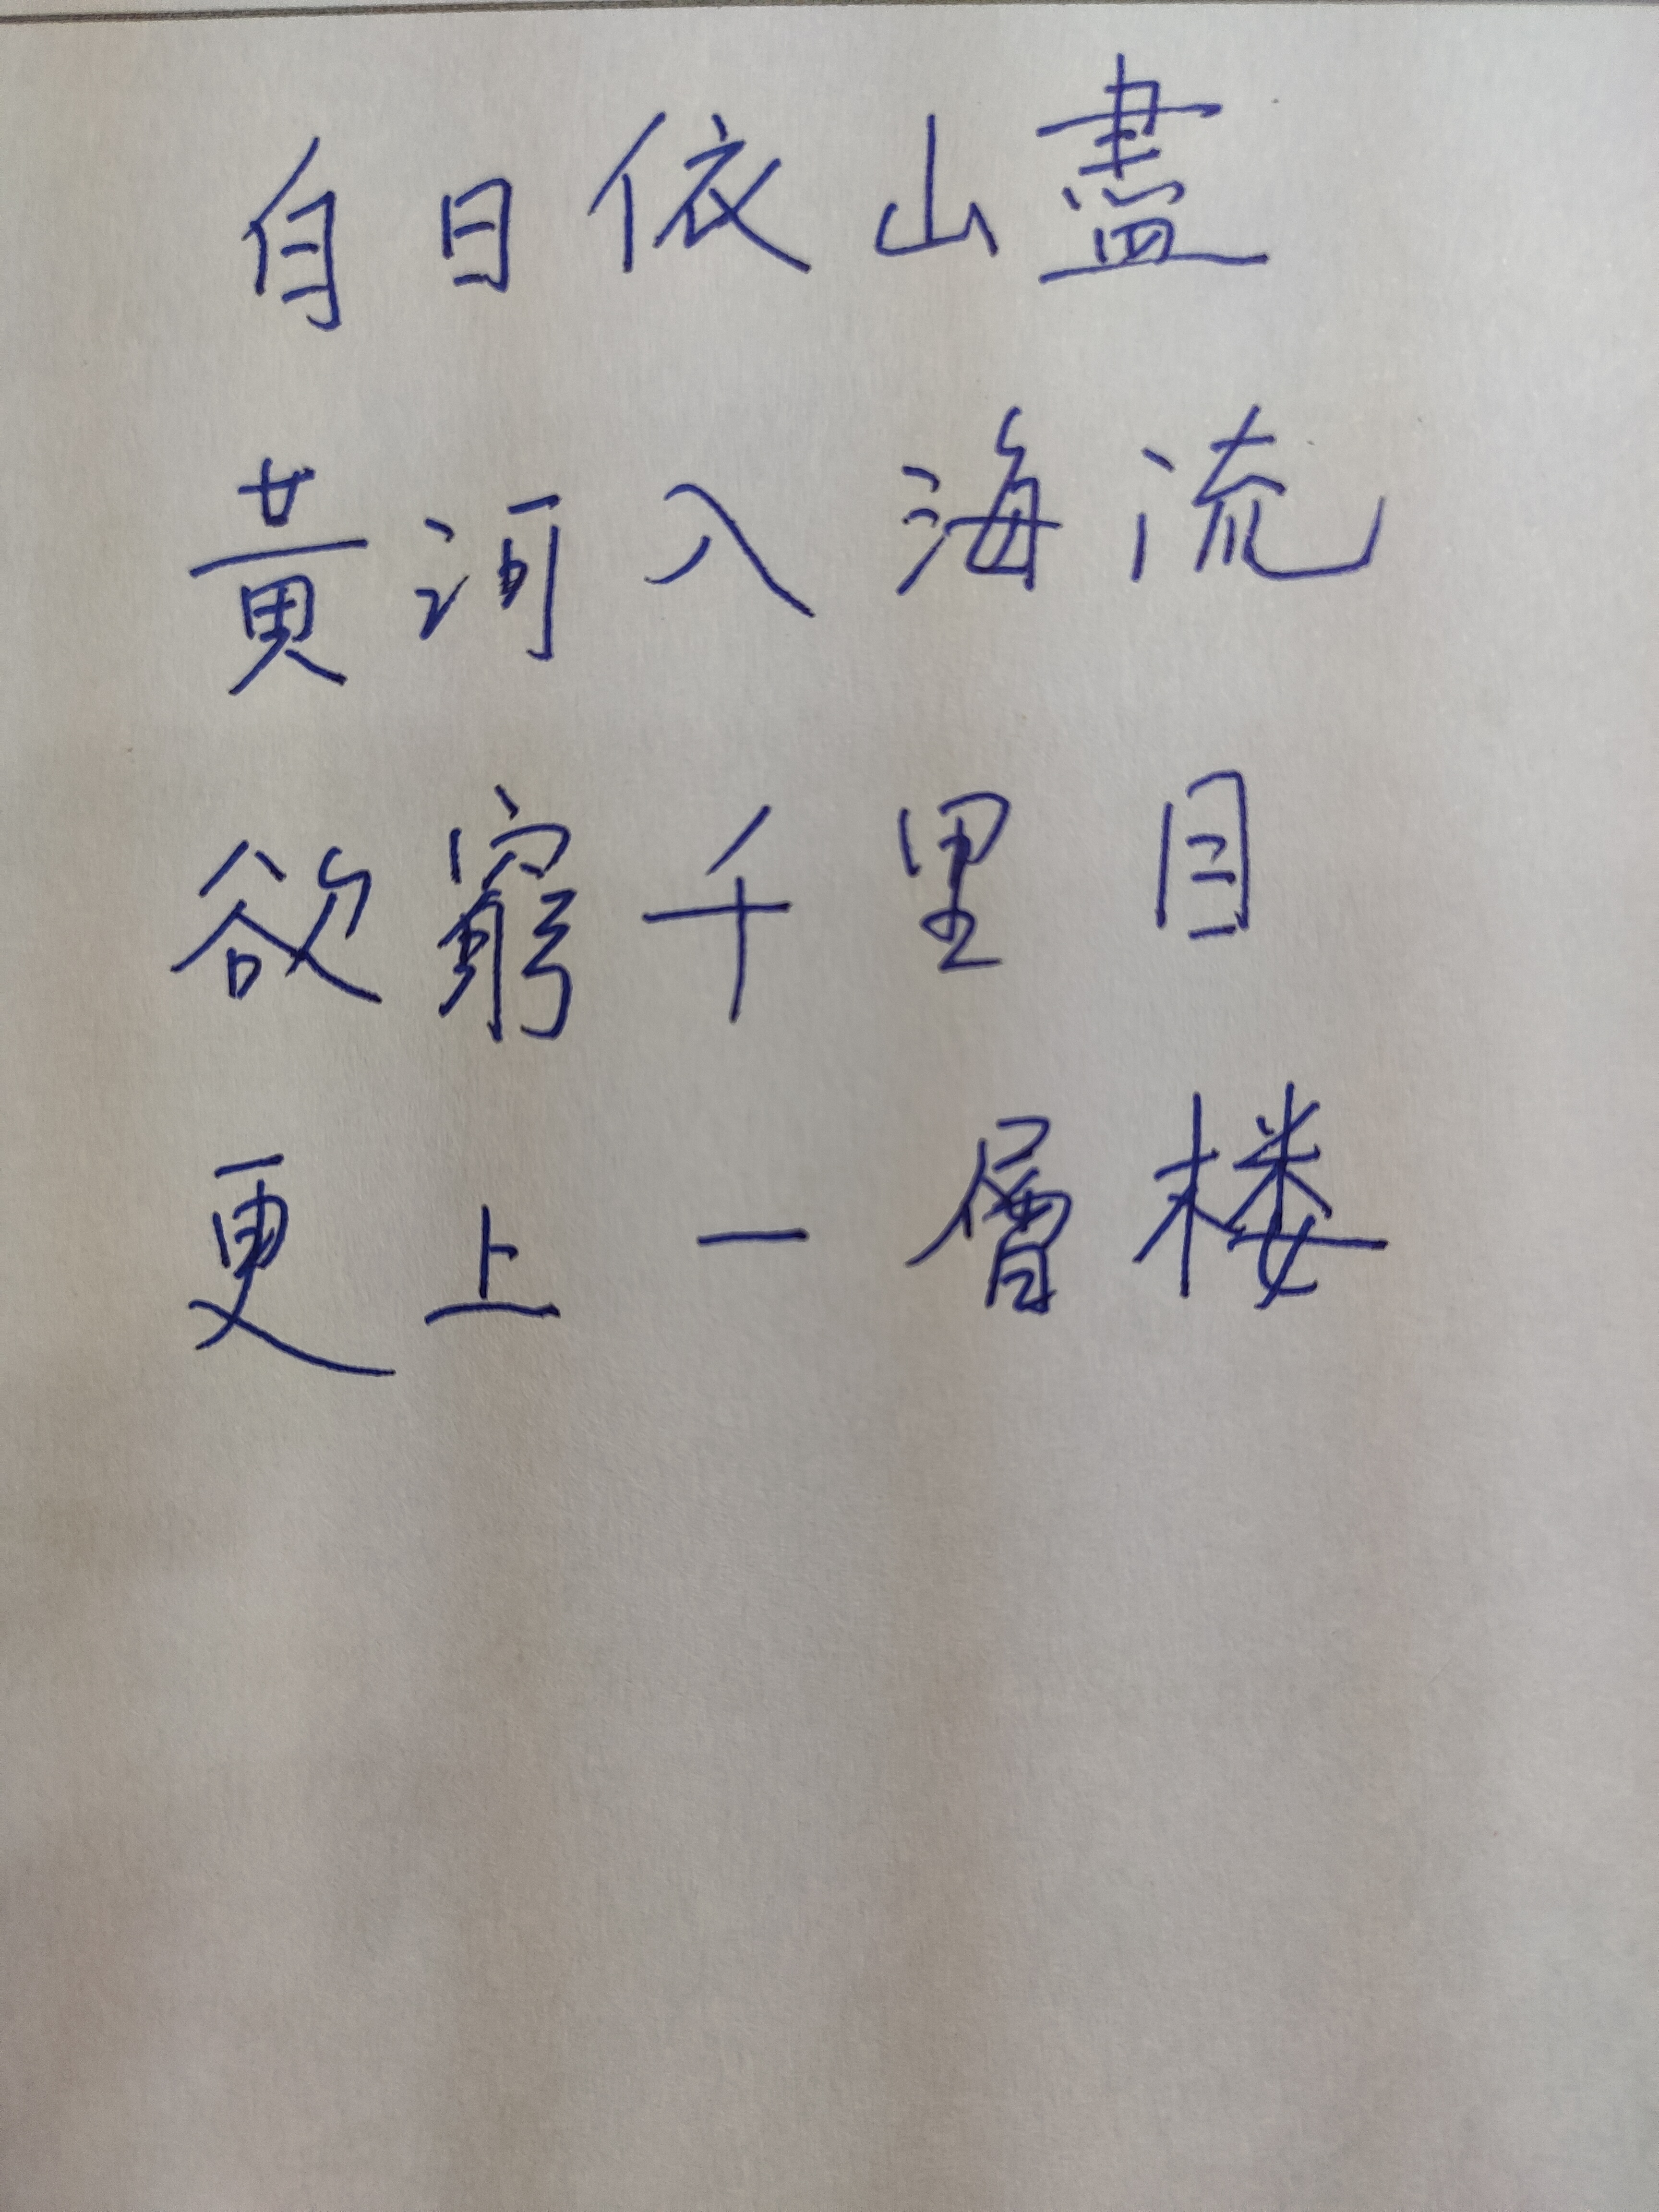 自日依山盡
黃河入海流
欲窮千里目
更上一層楼